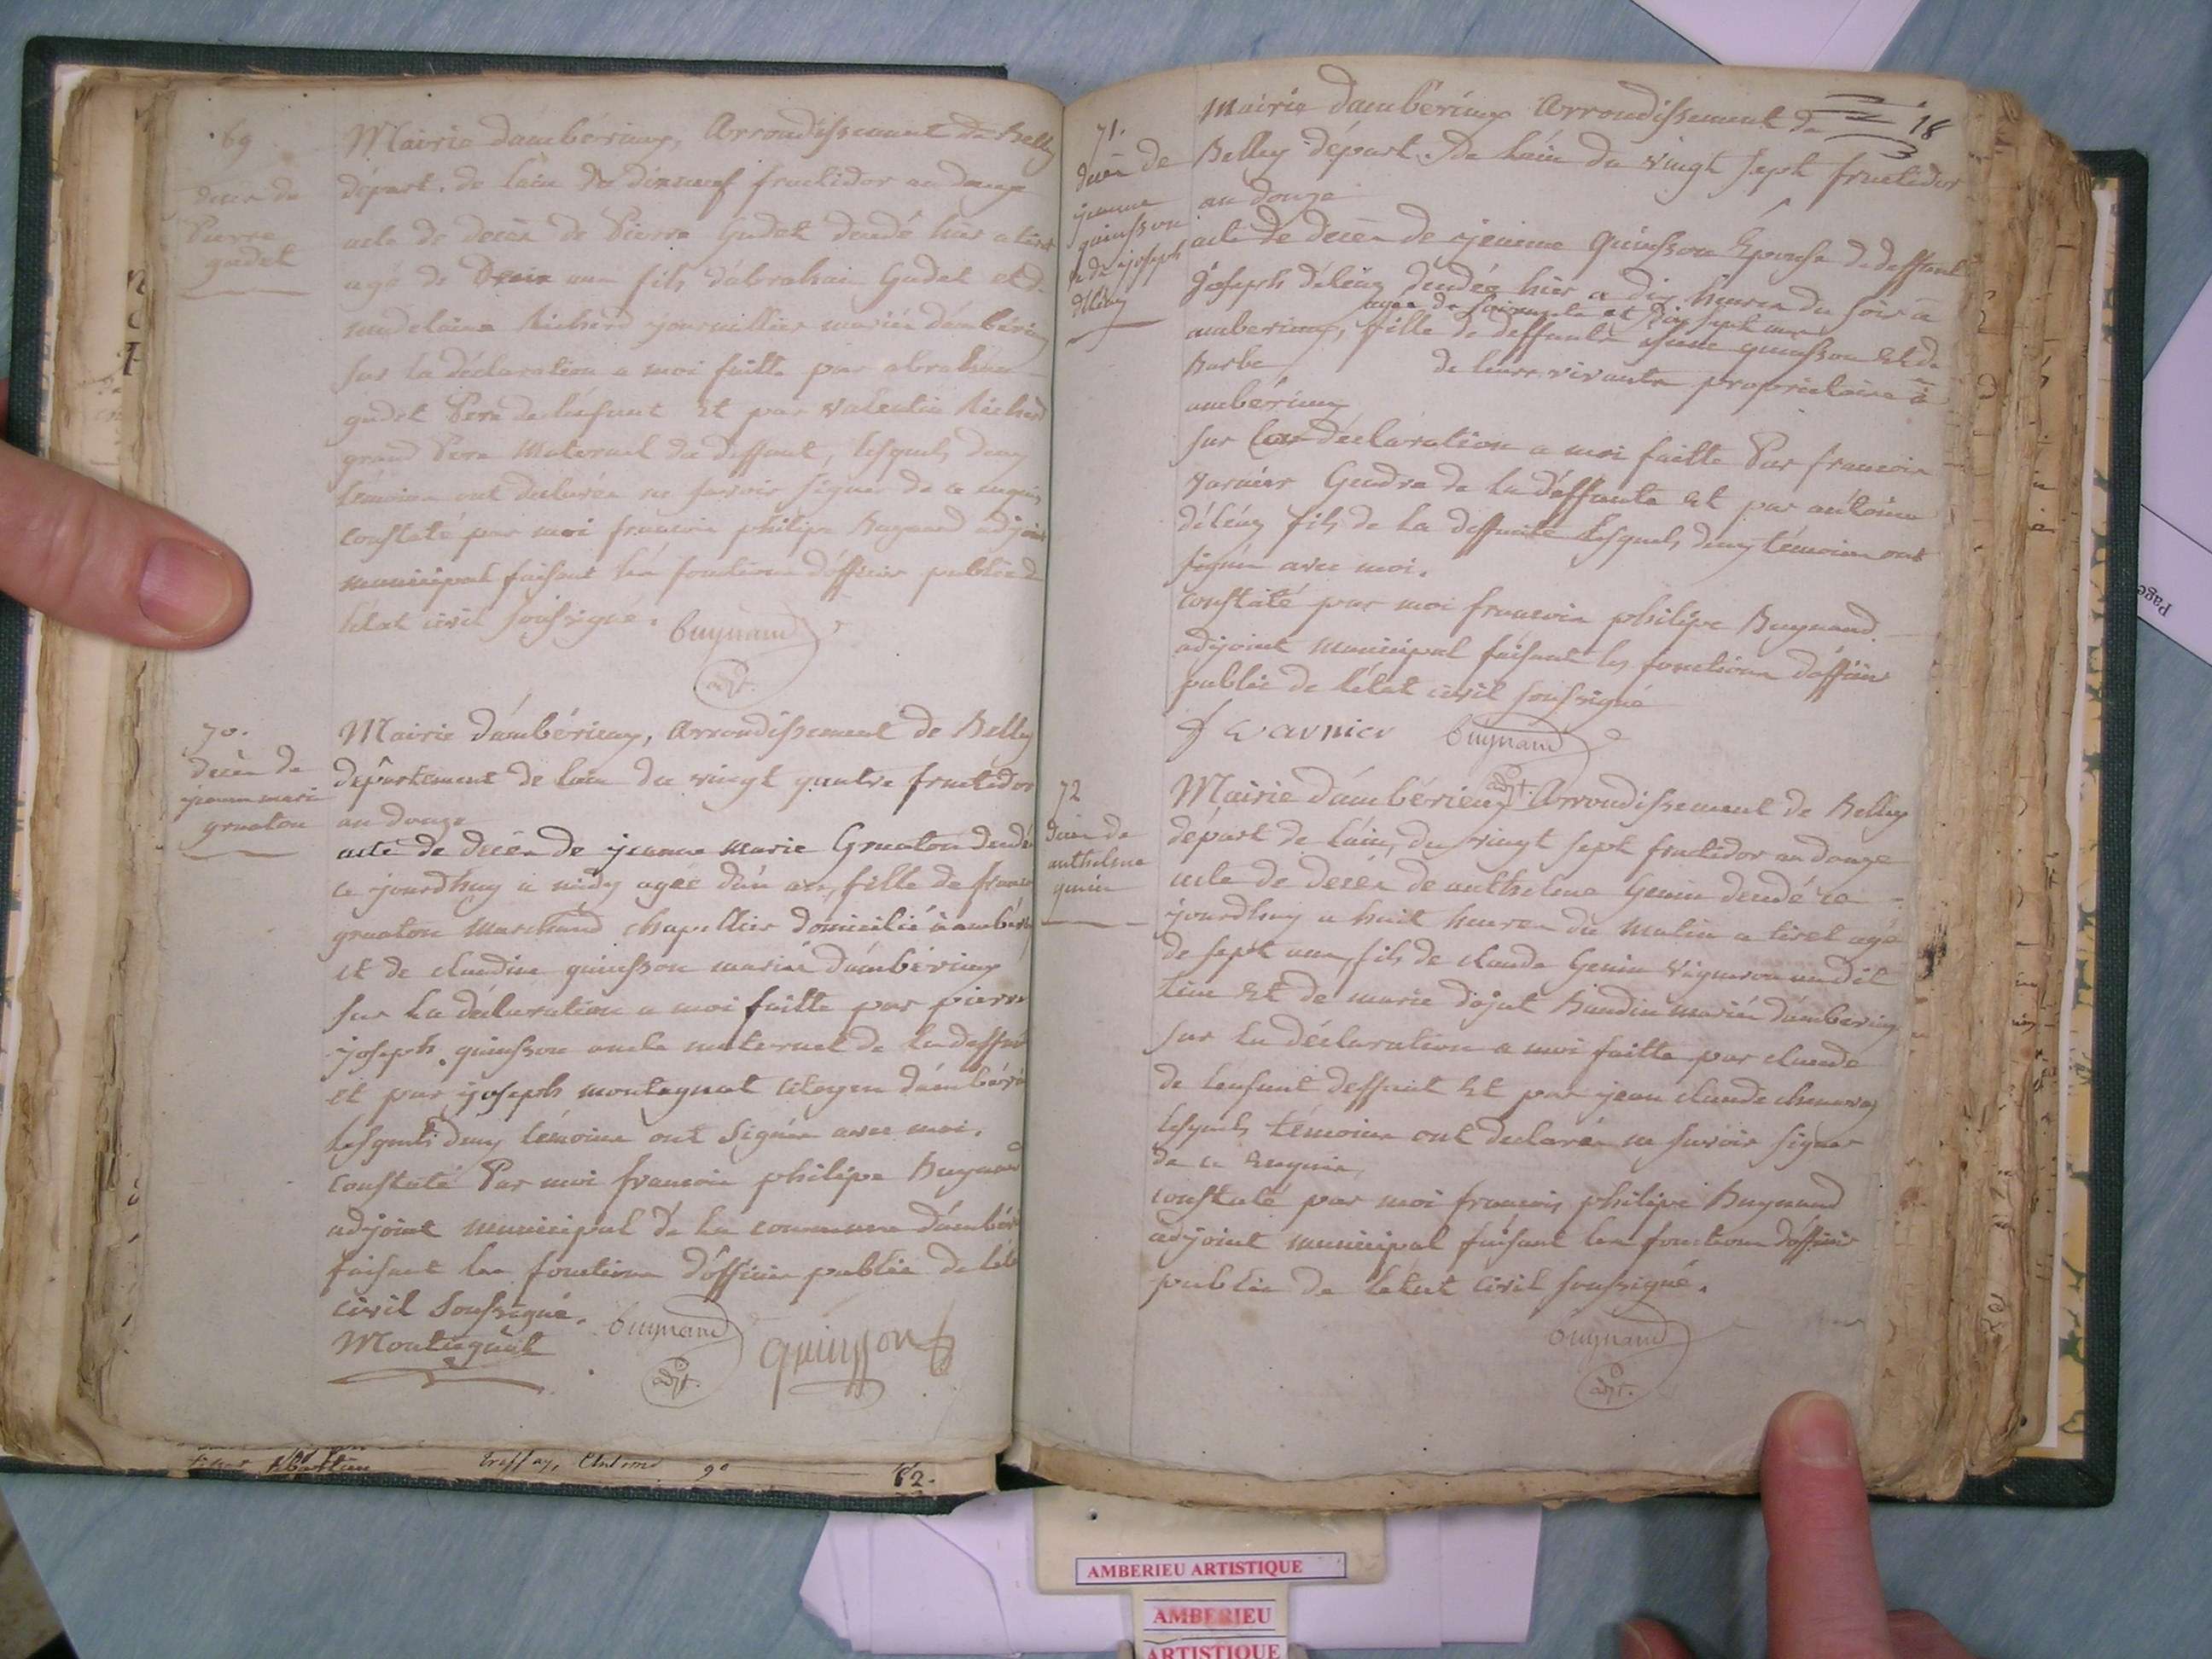 69
decès de
Pierre
gudet
Mairie d'ambérieux, Arrondissement de Belley
départ. de lain du dixneuf fructidor an douze
acte de decès de Pierre Gudet décédé hier a tiret
agé de ans fils d'abraham Gudet et de
madelaine Richerd journallier mariés d'ambérieux
sur la déclaration a moi faitte par abraham
gudet Pere de l'enfant et par valentin Richerd
grand Pere Maternel du deffunt, lesquels deux
témoins ont declarés ne savoir signer de ce enquis
constaté par moi francois philipe Buynand adjoint
municipal faisant les fonctions d'officier public de
létat civil soussigné.
buynand
adjt.
70.
decès de
jeanne marie
gruaton
Mairie d'ambérieux, Arrondissement de Belley
département de lain du vingt quatre fructidor
an douze
acte de decès de jeanne marie Gruaton décédée
ce jourdhuy a midy agée d'un an, fille de francois
gruaton marchand chapellier domicilié à ambérieux
et de claudine quinsson mariés d'ambérieux
sur la déclaration a moi faitte par pierre
joseph quinsson oncle maternel de la deffunte
et par joseph montagnat citoyen d'ambérieux
lesquels deux témoins ont signés avec moi.
constaté Par moi francois philipe Buynand
adjoint municipal de la commune d'ambérieux
faisant les fonctions d'officier public de l'état
civil soussigné.
Montagnat
buynand
adjt.
quinsson
82.
18
71.
decès de
jeanne
quinsson
ve de joseph
déléaz
Mairie d'ambérieux Arrondissement de
Belley départ. de lain du vingt sept fructidor
an douze
acte de decès de jeanne quinsson Epouse de deffunt
Joseph déléaz décédée hier a dix heures du soir à
agée de soixante et dix sept ans
amberieux, fille de deffunts quinsson et de
Barbe de leurs vivants propriétaire à
ambérieux
sur la declaration a moi faitte Par francois
varnier Gendre de la deffunte et par antoine
déléaz fils de la deffunte lesquels deux témoins ont
signés avec moi.
constaté par moi francois philipe Buynand
adjoint municipal faisant les fonctions d'officier
public de l'état civil soussigné
f warnier
buynand
adjt.
72
decès de
anthelme
genin
Mairie d'ambérieux Arrondissement de Belley
départ de lain, du vingt sept fructidor an douze
acte de decès de anthelme Genin décédé ce
jourdhuy a huit heures du matin a tiret agé
de sept ans, fils de claude Genin vigneron audit
lieu et de marie d'ajat Baudin mariés d'amberieux
sur la déclaration a moi faitte par claude
de lenfant deffunt et par jean claude chenavaz
lesquels témoins ont declarés ne savoir signer
de ce enquis
constaté par moi francois philipe Buynand
adjoint municipal faisant les fonctions d'officier
public de letat civil soussigné.
buynand
adjt.
Page
AMBERIEU ARTISTIQUE
AMBERIEU
ARTISTIQUE